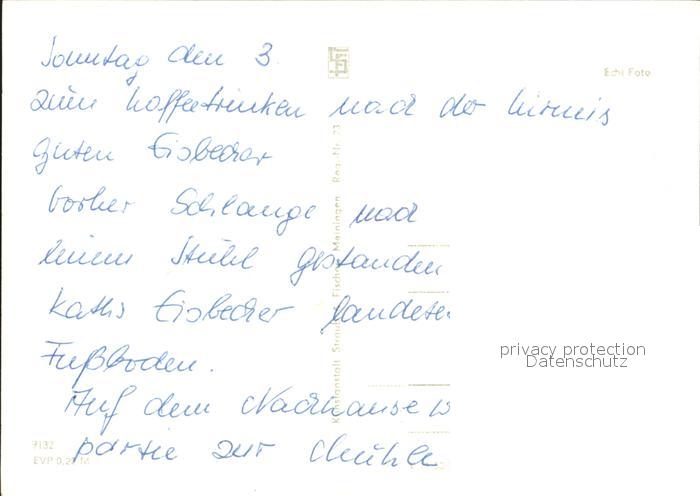 Sonntag den 3.
Echt Foto
zum Kaffeetrinken nach der Kirmis
guten Eisbecher
Vorher Schlange nach
einem Stuhl gestanden
Kaths Eisbecher landete
Fußboden.
Auf dem Nachhause
partie zur Mühle
Kunstanstalt Straub & Fischer Meiningen Reg.-Nr. 73
7132
EVP 0,20 M
privacy protection
Datenschutz